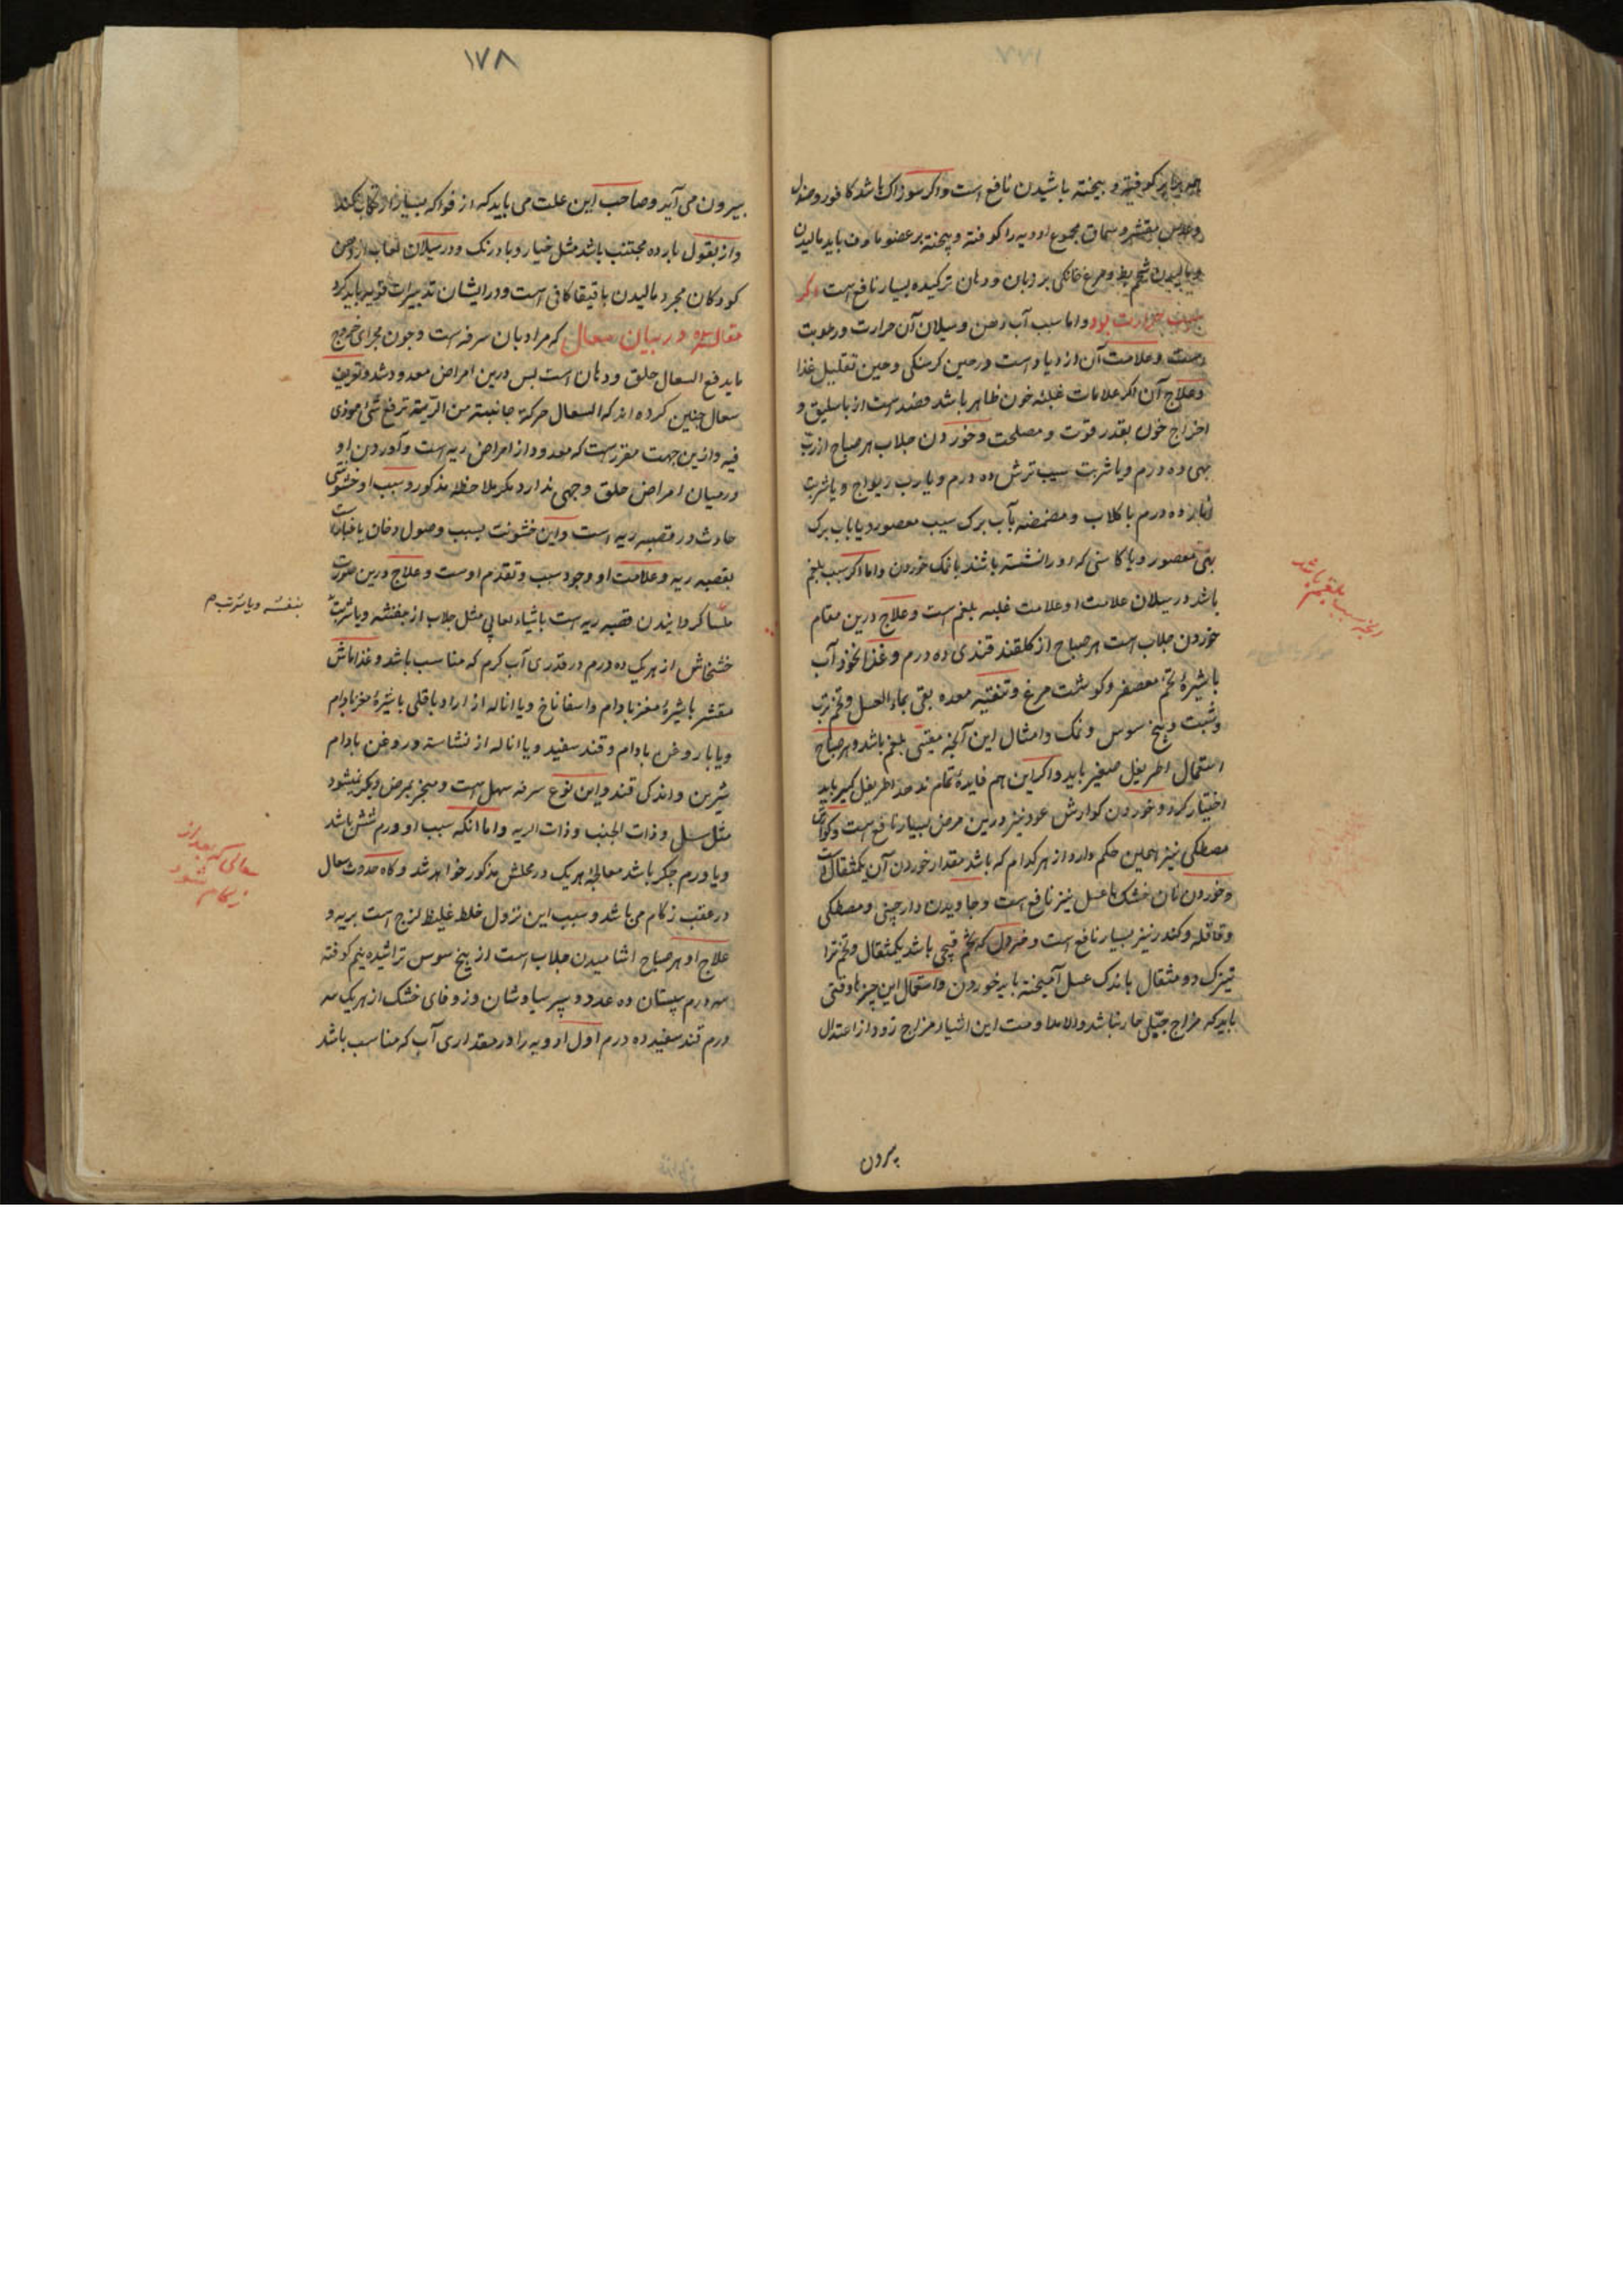 کوفته و بیخته پاشیدن نافع است و اگر سوزاک باشد کافور و صندل
و عدس مقشر و سماق مجموع ادویه را کوفته و بیخته بر عضو ماوف باید مالیدن
شحم بط و مرغ خانگی بر زبان و دهان ترکیده بسیار نافع است اگر
بود و اما سبب آب دهن و سیلان آن حرارت و رطوبت
است و علامت آن ازدیاد است در حین کرسنکی و حین تقلیل غذا
و علاج آن اگر علامات غلبه خون ظاهر باشد فصد است از باسلیق و
اخراج خون بقدر قوت و مصلحت و خوردن جلاب هر صباح از رب
بهی ده درم و یا شربت سیب ترش ده درم و یا رب ریواج و یا شربت
انار ده درم با کلاب و مضمضه بآب برک سیب معصور و یا باب برک
بهی معصور و یا کاسنی که او را نشسته باشند با نمک خوردن و اما اگر سبب بلغم
باشد در سیلان علامت او علامت غلبه بلغم است و علاج درین مقام
خوردن جلاب است هر صباح از کلقند قندی ده درم و غذا نخود آب
با شیرهٔ تخم معصفر و کوشت مرغ و تنقیه معده بقی بماء العسل و تخم ترب
و شبت و بیخ سوس و نمک و امثال این آنچه مقیئ بلغم باشد و هر صباح
استعمال اطریفل صغیر باید و اگر این هم فایدهٔ تمام ندهد اطریفل کبیر باید
اختیار کرد و خوردن کوارش عود نیز درین مرض بسیار نافع است و کوارش
مصطکی نیز همین حکم دارد از هر کدام که باشد مقدار خوردن آن یکمثقال است
و خوردن نان خشک با عسل نیز نافع است و جاویدن دارچینی و مصطکی
و قاقله و کندر نیز بسیار نافع است و خردل که تخم قیچی باشد یکمثقال و تخم ترا
تیزک دو مثقال باندک عسل آمیخته باید خوردن و استعمال این چیزها وقتی
باید که مزاج جبلی حار نباشد و الا مداومت این اشیا مزاج زود از اعتدال
بیرون
آنچه سبب بلغم باشد
١٧٨
بیرون می آید و صاحب این علت می باید که از فواکه بسیار ارتکاب نکند
و از بقول بارده مجتنب باشد مثل خیار و بادرنک و در سیلان لعاب از دهن
کودکان مجرد مالیدن باقیقا کافی است و در ایشان تدبیرات قویه نباید کرد
مقاله در بیان سعال که مراد بآن سرفه است و چون مجرای خروج
ما یدفع السعال حلق و دهان است پس درین امراض معدود شد و تعریف
سعال چنین کرده اند که السعال حرکة جانبته من الریة ترفع شئ موذی
فیه و ازین جهت مقرر است که معدود از امراض ریه است و آوردن او
در میان امراض حلق وجهی ندارد مکر ملاحظه مذکور و سبب او خشونتی
حادث در قصبه ریه است و این خشونت بسبب وصول دخان یا غبار است
بقصبه ریه و علامت او وجود سبب و تقدم اوست و علاج درین صورت
ملسا کردانیدن قصبه ریه است باشیاء لعابی مثل جلاب از بنفشه و یا شربت
خشخاش از هر یک ده درم در قدری آب کرم که مناسب باشد و غذا ماش
مقشر با شیرهٔ مغز بادام و اسفاناخ و یا اناله از اراد باقلی با شیرهٔ مغز بادام
و یا با روغن بادام و قند سفید و یا اناله از نشاسته و روغن بادام
شیرین و اندک قند و این نوع سرفه سهل است و منجر بمرض دیکر نمیشود
مثل سل و ذات الجنب و ذات الریه و اما انکه سبب او ورم شش باشد
و یا ورم جکر باشد معالجهٔ هر یک در محلش مذکور خواهد شد و کاه حدوث سعال
در عقب زکام می باشد و سبب این نزول خلط غلیظ لزج است بریه و
علاج او هر صباح اشامیدن جلاب است از بیخ سوس تراشیده نیم کوفته
سه درم سپستان ده عدد و پر سیاوشان و زوفای خشک از هر یک سه
درم قند سفید ده درم اول ادویه را در مقداری آب که مناسب باشد
بنفشه و یا شربت م
سعالی که بعد از
زکام شود